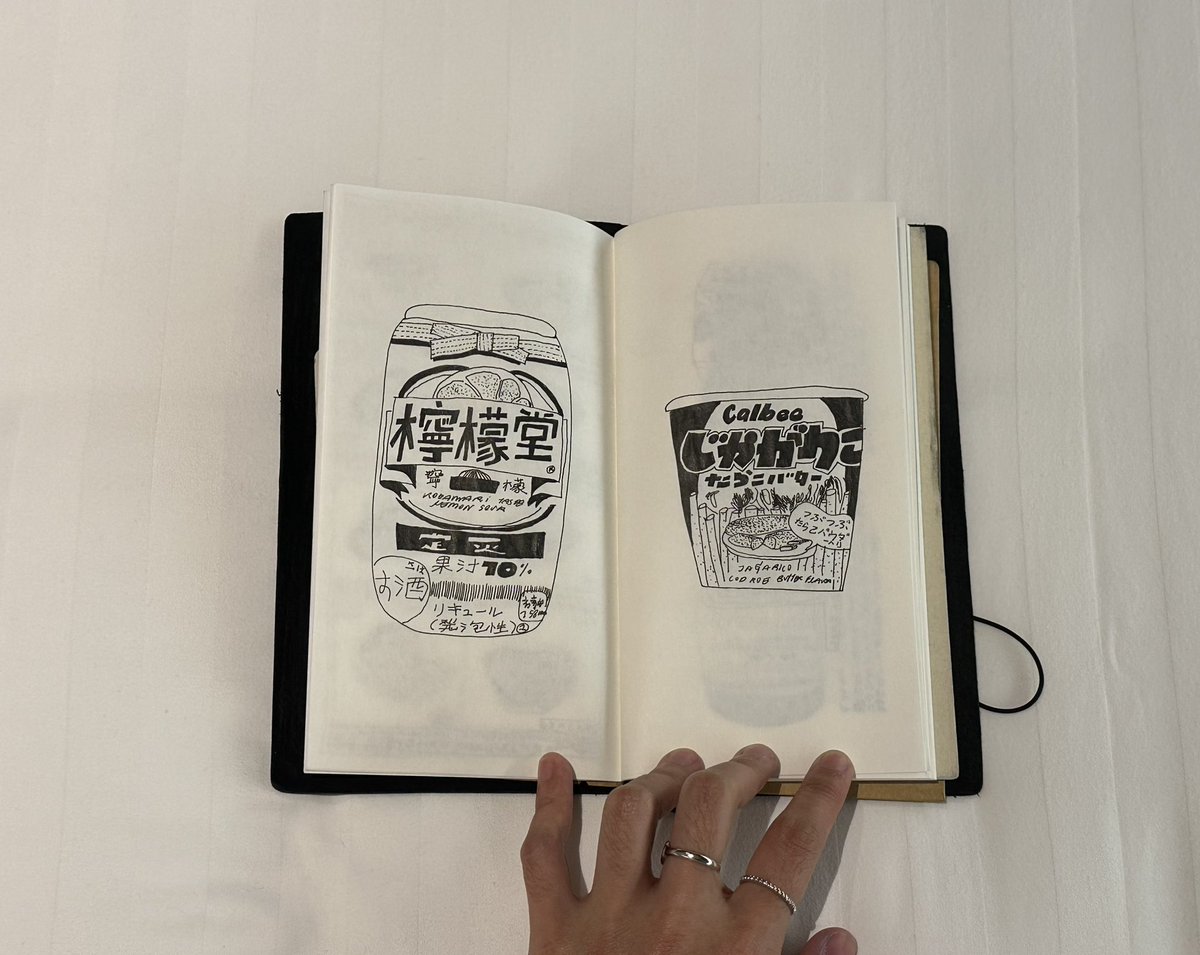 檸檬堂
®
檸檬
KODAWARI
LEMON SOUR
定番
果汁10%
お酒
リキュール
(発泡性)①
Calbee
じゃがりこ
たらこバター
つぶつぶ
たらこパウダー
JAGARICO
COD ROE BUTTER FLAVOR